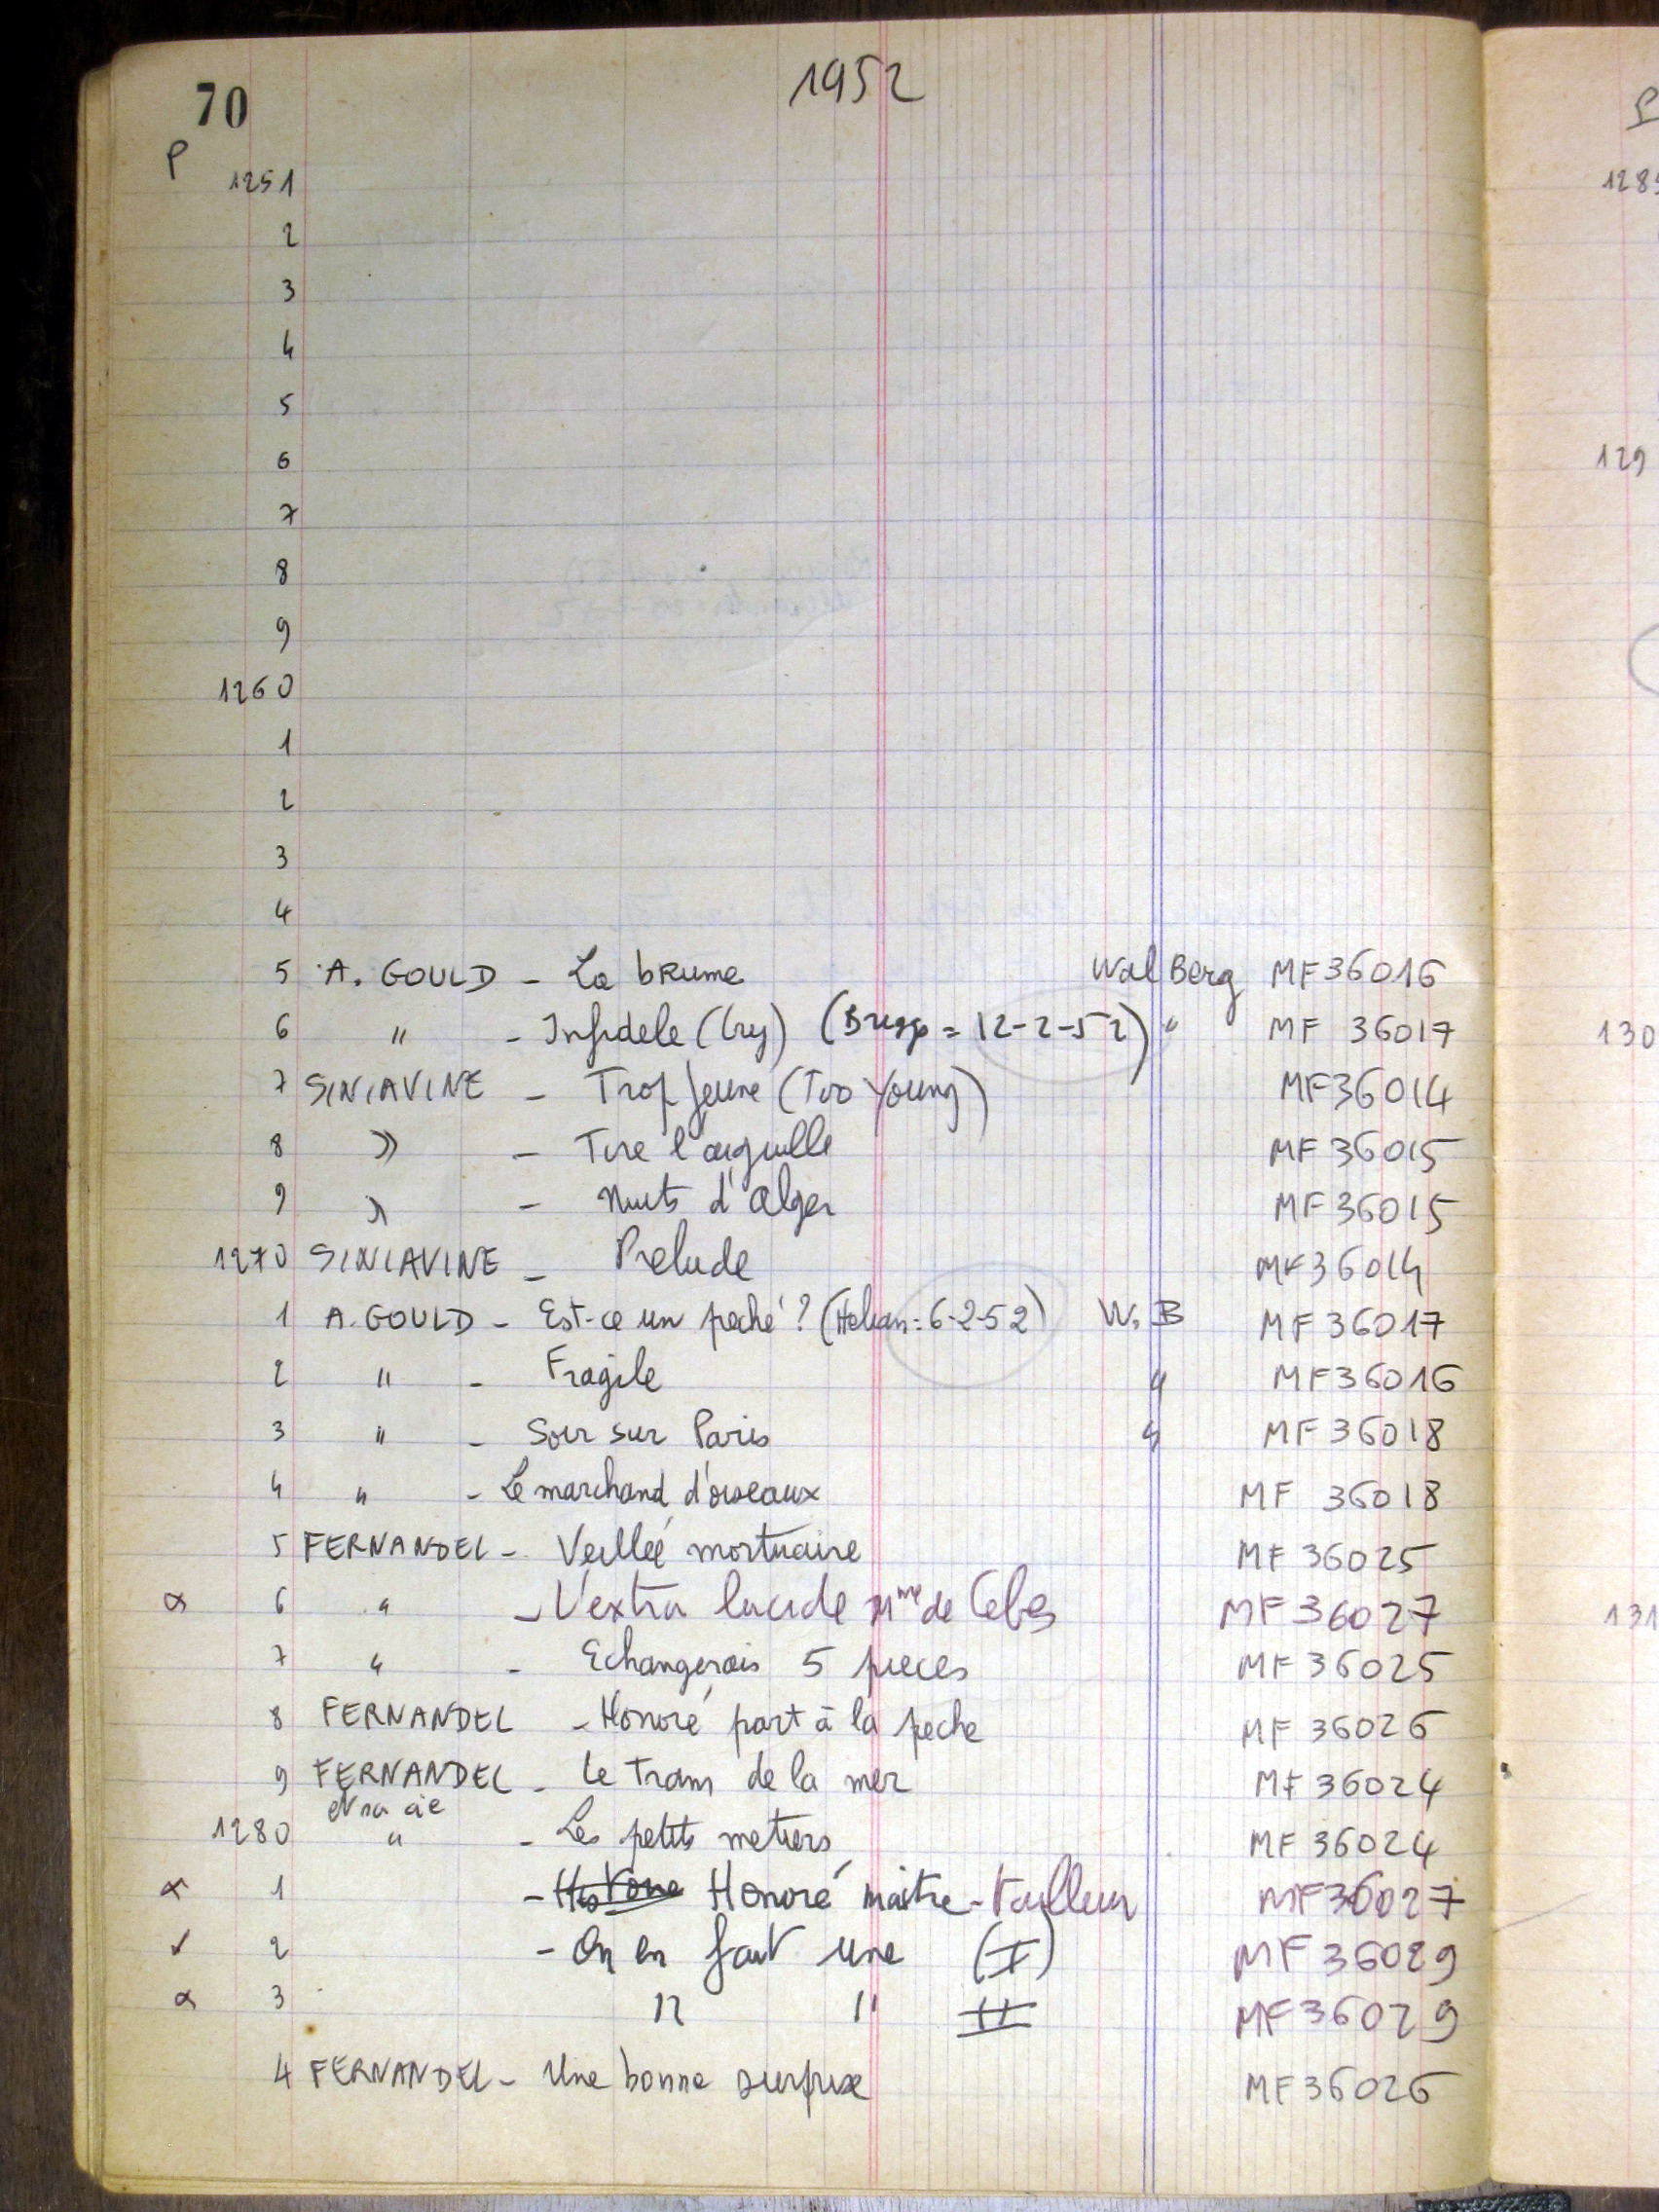 70
1952
P
1251
2
3
4
5
6
7
8
9
1260
1
2
3
4
5 A. GOULD - La brume Wal Berg MF36016
6 " - Infidele (Cry) (Briggs = 12-2-52) " MF 36017
7 SINIAVINE - Trop jeune (Too Young) MF36014
8 » - Tire l'aiguille MF 36015
9 » - Nuits d'Alger MF36015
1270 SINIAVINE - Prelude MF36014
1 A. GOULD - Est-ce un peché? (Helian: 6-2-52) W. B MF 36017
2 " - Fragile " MF36016
3 " - Soir sur Paris " MF 36018
4 " - Le marchand d'oiseaux MF 36018
5 FERNANDEL - Veillée mortuaire MF 36025
α 6 " - L'extra lucide Mme de Cebes MF 36027
7 " - Echangerais 5 pieces MF 36025
8 FERNANDEL - Honoré part à la peche MF 36026
9 FERNANDEL - Le Tram de la mer MF 36024
et sa cie
1280 " - Les petits metiers MF 36024
α 1 - Histoire Honoré maitre-tailleur MF36027
✓ 2 - On en fait une (I) MF 36029
α 3 " " II MF36029
4 FERNANDEL - Une bonne surprise MF36026
P
128
129
130
131